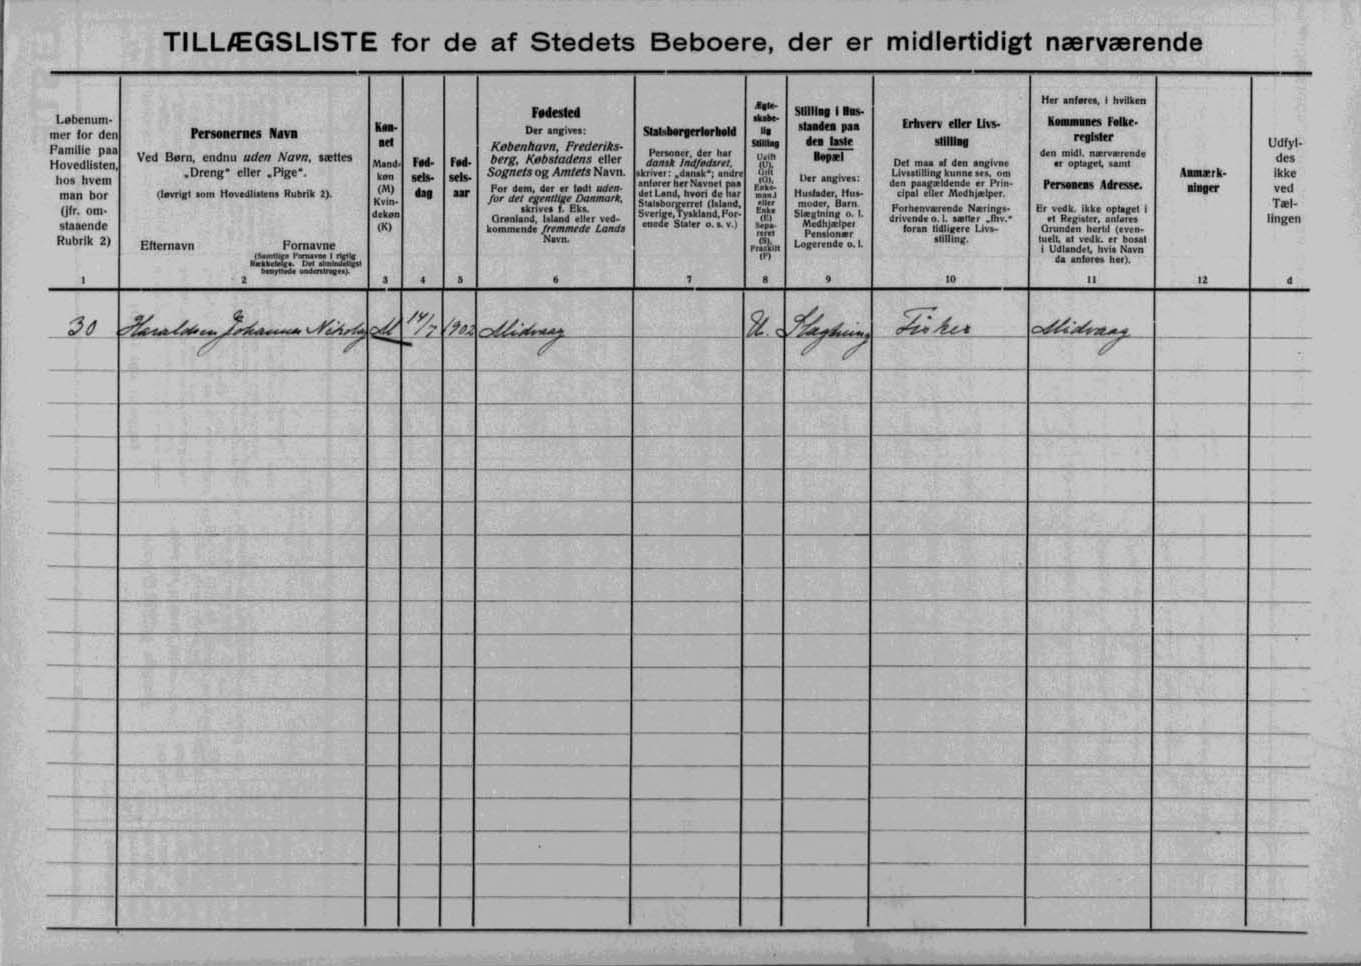 TILLÆGSLISTE for de af Stedets Beboere, der er midlertidigt nærværende
Løbenum-
mer for den
Familie paa
Hovedlisten,
hos hvem
man bor
(jfr. om-
staaende
Rubrik 2)
1
Personernes Navn
Ved Børn, endnu uden Navn, sættes
„Dreng“ eller „Pige“.
(Iøvrigt som Hovedlistens Rubrik 2).
Efternavn Fornavne
(Samtlige Fornavne i rigtig
Rækkefølge. Det almindeligst
benyttede understreges).
2
Køn-
net
Mand-
køn
(M)
Kvin-
dekøn
(K)
3
Fød-
sels-
dag
4
Fød-
sels-
aar
5
Fødested
Der angives:
København, Frederiks-
berg, Købstadens eller
Sognets og Amtets Navn.
For dem, der er født uden-
for det egentlige Danmark,
skrives f. Eks.
Grønland, Island eller ved-
kommende fremmede Lands
Navn.
6
Statsborgerforhold
Personer, der har
dansk Indfødsret,
skriver: „dansk“; andre
anfører her Navnet paa
det Land, hvori de har
Statsborgerret (Island,
Sverige, Tyskland, For-
enede Stater o. s. v.)
7
Ægte-
skabe-
lig
Stilling
Ugift
(U),
Gift
(G),
Enke-
mand
eller
Enke
(E)
Sepa-
reret
(S),
Fraskilt
(F)
8
Stilling i Hus-
standen paa
den faste
Bopæl
Der angives:
Husfader, Hus-
moder, Barn,
Slægtning o. l.
Medhjælper
Pensionær
Logerende o. l.
9
Erhverv eller Livs-
stilling
Det maa af den angivne
Livsstilling kunne ses, om
den paagældende er Prin-
cipal eller Medhjælper.
Forhenværende Nærings-
drivende o. l. sætter „fhv.“
foran tidligere Livs-
stilling.
10
Her anføres, i hvilken
Kommunes Folke-
register
den midl. nærværende
er optaget, samt
Personens Adresse.
Er vedk. ikke optaget i
et Register, anføres
Grunden hertil (even-
tuelt, at vedk. er bosat
i Udlandet, hvis Navn
da anføres her).
11
Anmærk-
ninger
12
Udfyl-
des
ikke
ved
Tæl-
lingen
d
30 Haraldsen Johannes Nikolaj M 14/7 1902 Midvaag U. Slagtning Fisker Midvaag